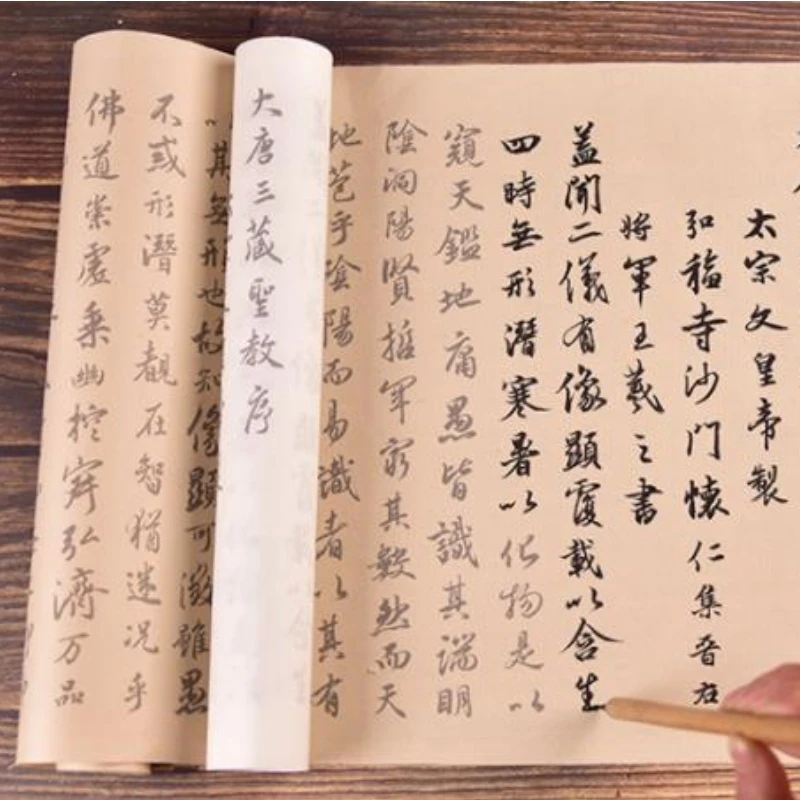 太宗文皇帝製
弘福寺沙門懷仁集晉右
將軍王羲之書
蓋聞二儀有像顯覆載以含生
四時無形潛寒暑以化物是以
窺天鑑地庸愚皆識其端明
陰洞陽賢哲罕窮其數然而天
地苞乎陰陽而易識者以其有
大唐三藏聖教序
以其無形也故知像顯可徵雖愚
不惑形潛莫覩在智猶迷況乎
佛道崇虛乘幽控寂弘濟万品